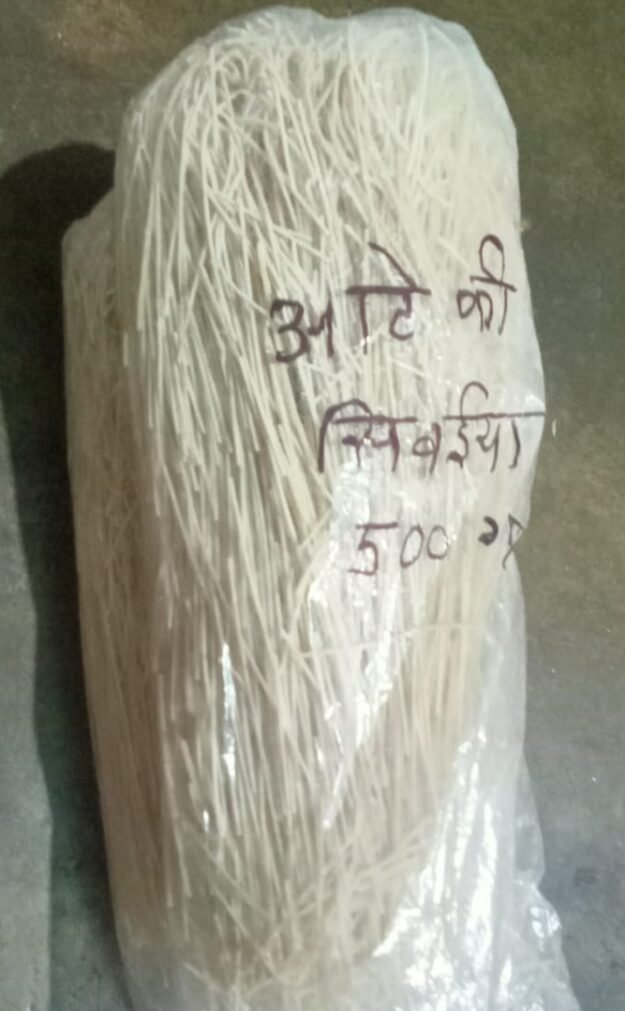 आटे की
सिवईया
500 ग्र